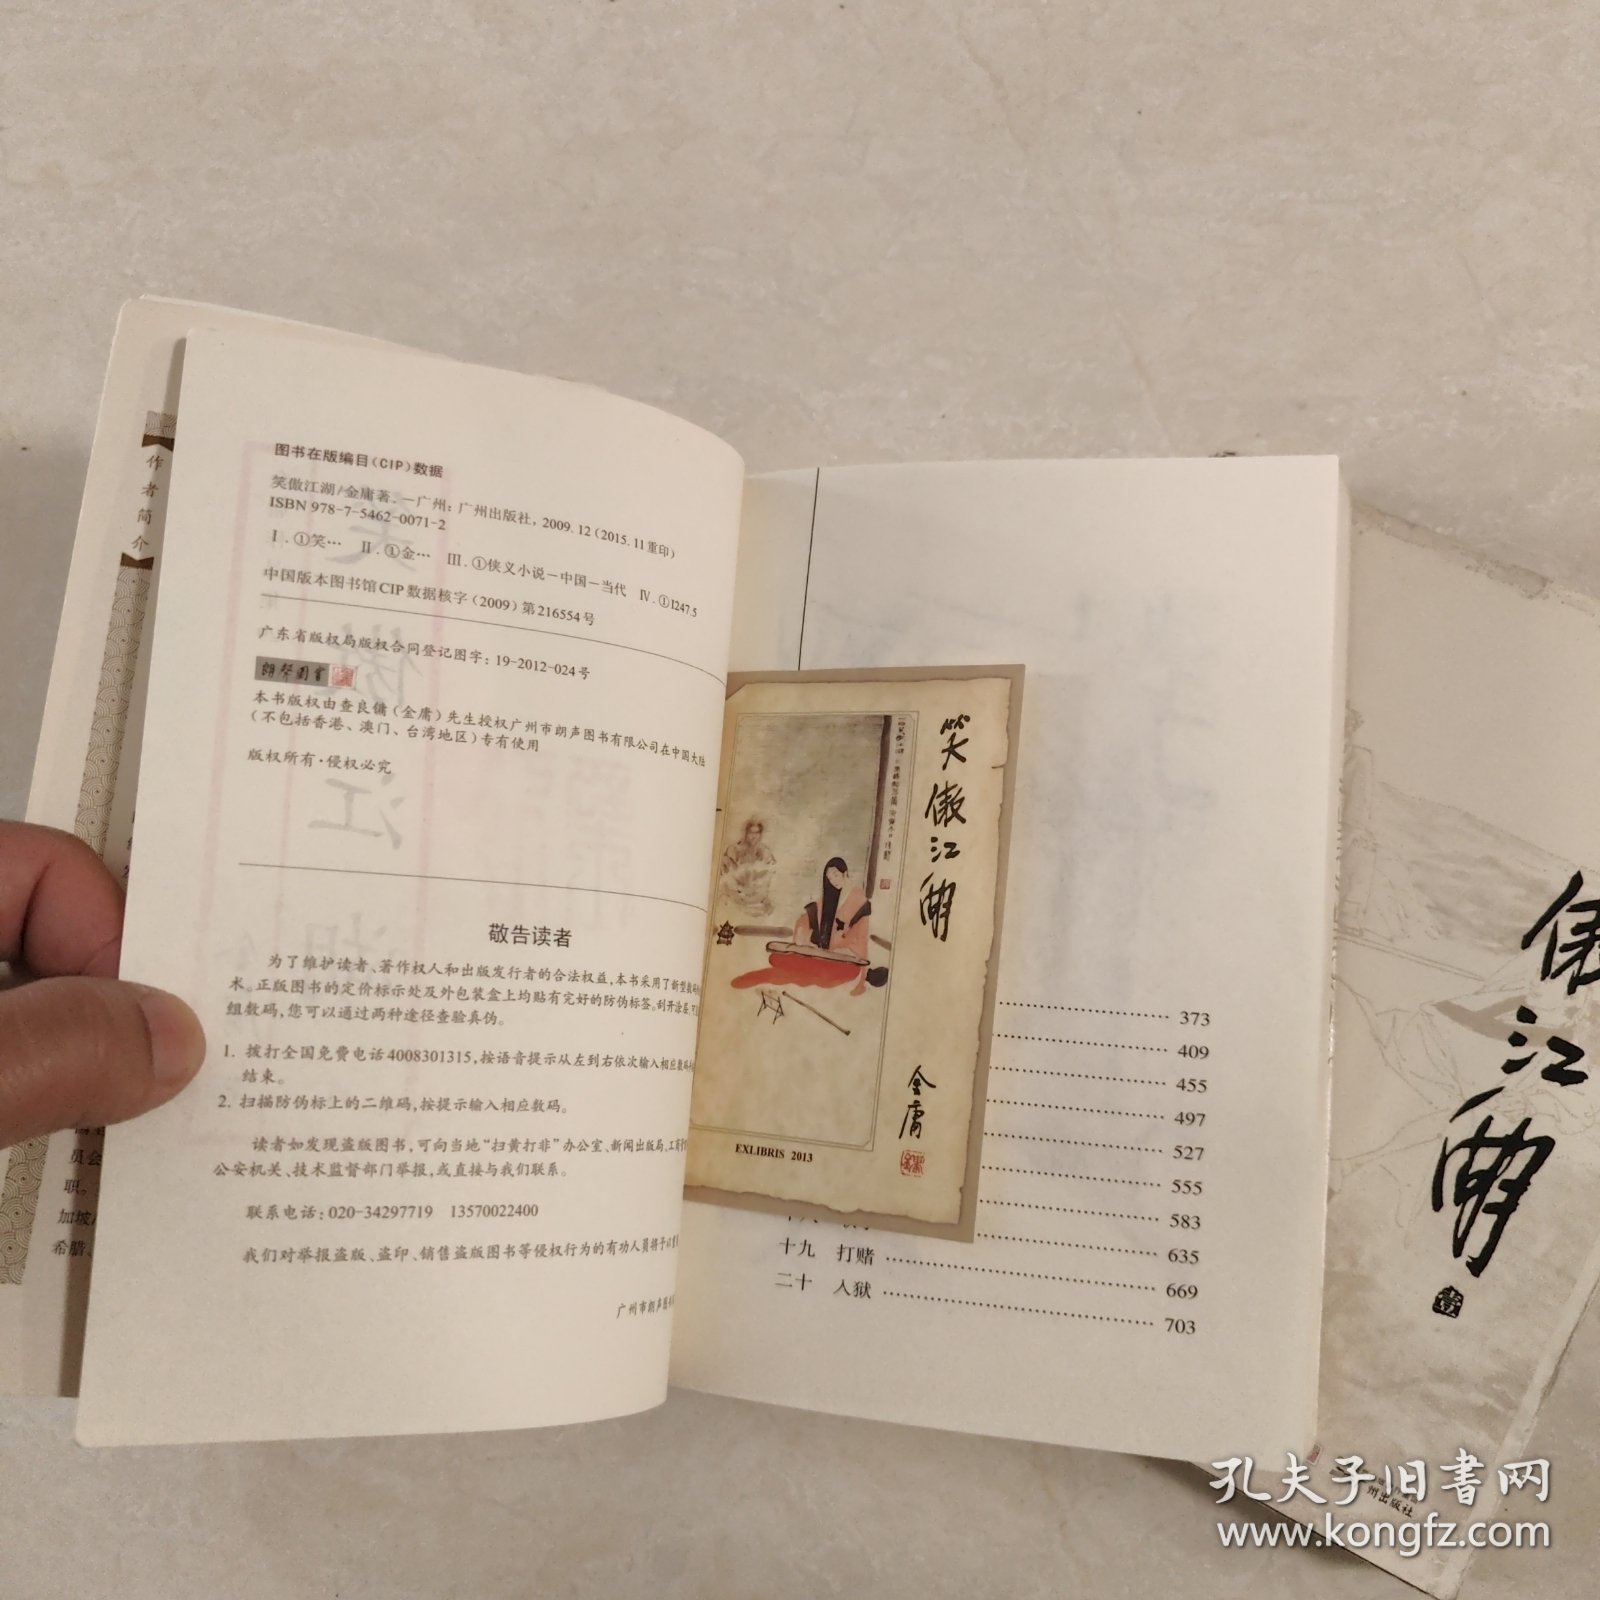 作者简介
图书在版编目(CIP)数据
笑傲江湖/金庸著.—广州:广州出版社,2009.12(2015.11重印)
ISBN 978-7-5462-0071-2
Ⅰ.①笑… Ⅱ.①金… Ⅲ.①侠义小说－中国－当代 Ⅳ.①I247.5
中国版本图书馆CIP数据核字(2009)第216554号
广东省版权局版权合同登记图字:19-2012-024号
朗声图书
本书版权由查良镛(金庸)先生授权广州市朗声图书有限公司在中国大陆
(不包括香港、澳门、台湾地区)专有使用
版权所有·侵权必究
敬告读者
为了维护读者、著作权人和出版发行者的合法权益,本书采用了新型数码
术。正版图书的定价标示处及外包装盒上均贴有完好的防伪标签。刮开涂层,
组数码,您可以通过两种途径查验真伪。
1. 拨打全国免费电话4008301315,按语音提示从左到右依次输入相应数码
结束。
2. 扫描防伪标上的二维码,按提示输入相应数码。
读者如发现盗版图书,可向当地“扫黄打非”办公室、新闻出版局、工商
公安机关、技术监督部门举报,或直接与我们联系。
联系电话:020-34297719 13570022400
我们对举报盗版、盗印、销售盗版图书等侵权行为的有功人员将予以
广州市朗声图
员会
职。
加坡
希腊、
笑傲江湖
金庸
EXLIBRIS 2013
373
409
455
497
527
555
583
635
十九 打赌 669
二十 入狱 703
傲江湖
壹
州出版社
孔夫子旧书网
www.kongfz.com